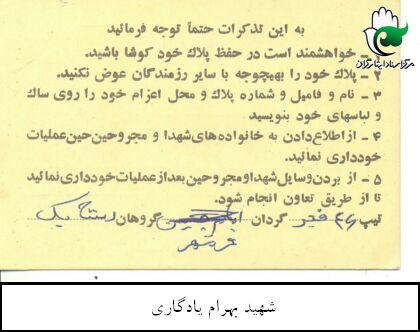 به این تذکرات حتماً توجه فرمائید
۱ - خواهشمند است در حفظ پلاك خود کوشا باشید.
۲ - پلاك خود را بهیچوجه با سایر رزمندگان عوض نکنید.
۳ - نام و فامیل و شماره پلاك و محل اعزام خود را روی ساك و لباسهای خود بنویسید
۴ - از اطلاع دادن به خانواده‌های شهدا و مجروحین حین عملیات خودداری نمائید.
۵ - از بردن وسایل شهدا و مجروحین بعد از عملیات خودداری نمائید تا از طریق تعاون انجام شود.
تیپ ۴۶ فجر گردان گروهان دسته یک
مرکز اسناد ایثارگران
شهید بهرام یادگاری